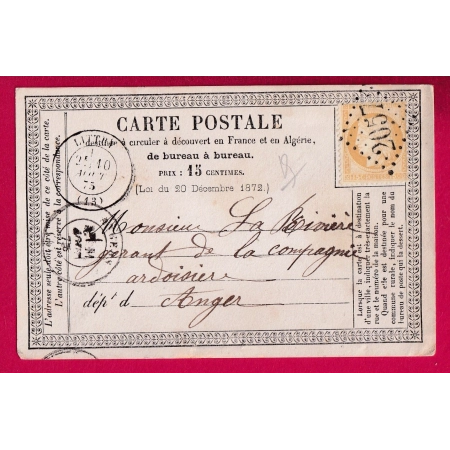 CARTE POSTALE
à circuler à découvert en France et en Algérie,
de bureau à bureau.
PRIX : 15 CENTIMES.
(Loi du 20 Décembre 1872.)
Monsieur La Rivière
gérant de la compagnie
ardoisière
dép^t d Anger
L'adresse seule doit être mise de ce côté de la carte.
L'autre côté est réservé à la correspondance.
Lorsque la carte est à destination
d'une ville, indiquer exactement la
rue et le numéro de la maison.
Quand elle est destinée pour une
commune rurale, indiquer le nom du
bureau de poste qui la dessert.
2057
10
75
(43)